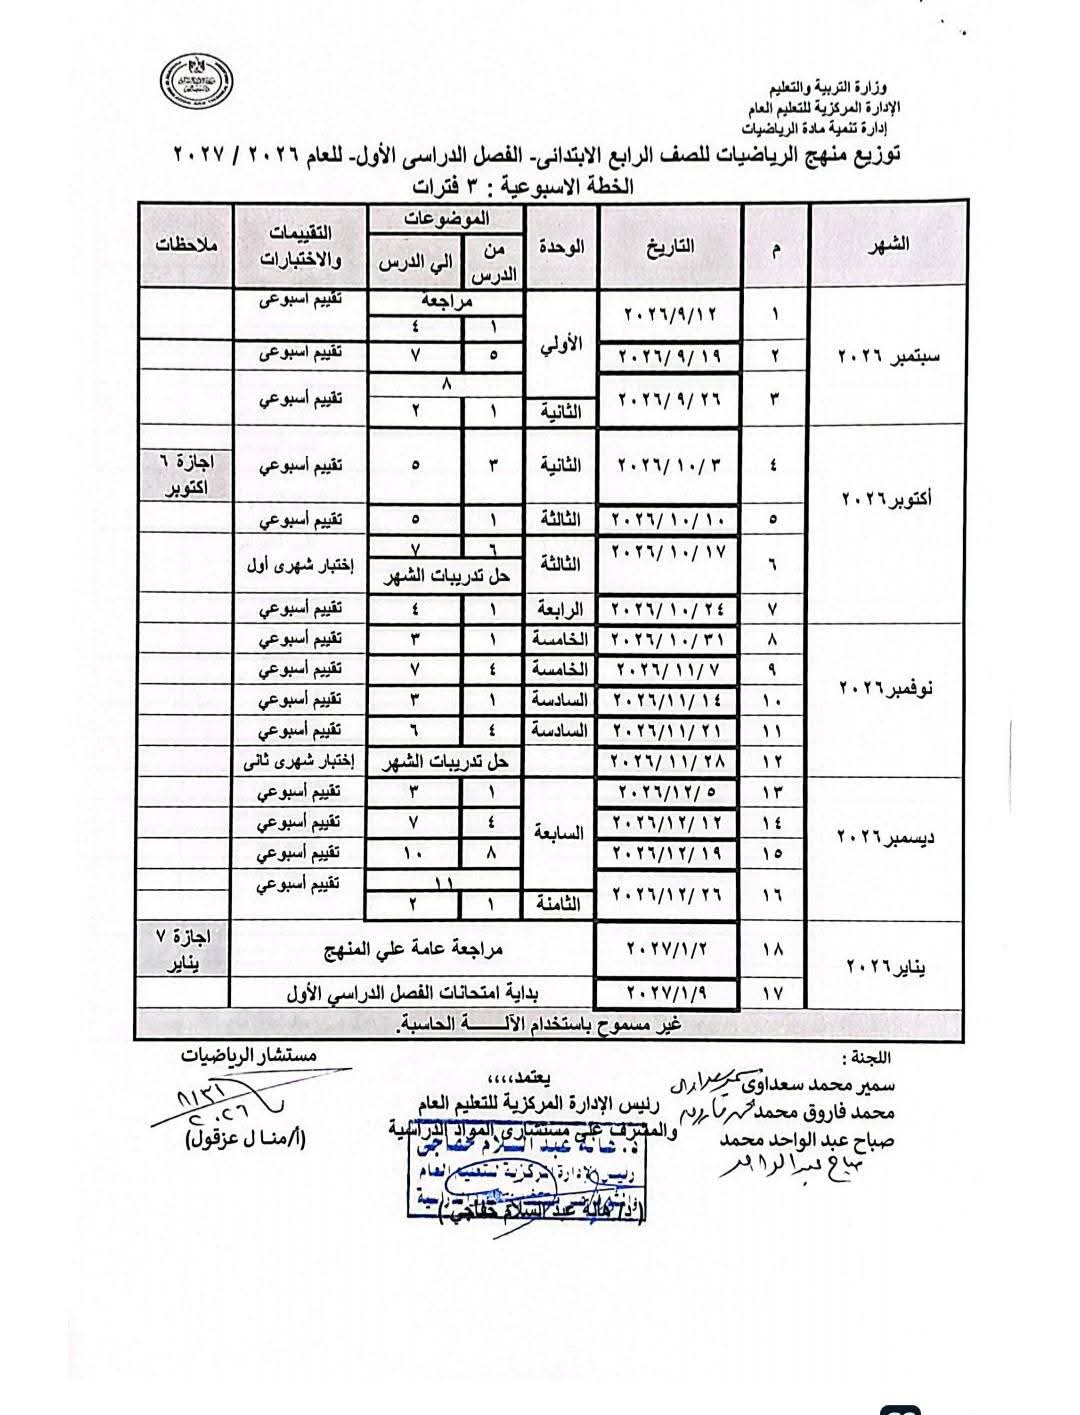 وزارة التربية والتعليم
الإدارة المركزية للتعليم العام
إدارة تنمية مادة الرياضيات
توزيع منهج الرياضيات للصف الرابع الابتدائى- الفصل الدراسى الأول- للعام ٢٠٢٦ / ٢٠٢٧
الخطة الاسبوعية : ٣ فترات
الشهر م التاريخ الوحدة الموضوعات من الدرس الي الدرس التقييمات والاختبارات ملاحظات
سبتمبر ٢٠٢٦ ١ ٢٠٢٦/٩/١٢ الأولي مراجعة تقييم اسبوعى
١ ٤
٢ ٢٠٢٦/ ٩/ ١٩ ٥ ٧ تقييم اسبوعى
٣ ٢٠٢٦/ ٩/ ٢٦ ٨ تقييم أسبوعي
الثانية ١ ٢
أكتوبر ٢٠٢٦ ٤ ٢٠٢٦/ ١٠/ ٣ الثانية ٣ ٥ تقييم أسبوعي اجازة ٦ اكتوبر
٥ ٢٠٢٦/ ١٠/ ١٠ الثالثة ١ ٥ تقييم أسبوعي
٦ ٢٠٢٦/ ١٠/ ١٧ الثالثة ٦ ٧ إختبار شهرى أول
حل تدريبات الشهر
٧ ٢٠٢٦/ ١٠/ ٢٤ الرابعة ١ ٤ تقييم أسبوعي
نوفمبر ٢٠٢٦ ٨ ٢٠٢٦/ ١٠/ ٣١ الخامسة ١ ٣ تقييم أسبوعي
٩ ٢٠٢٦/ ١١/ ٧ الخامسة ٤ ٧ تقييم أسبوعي
١٠ ٢٠٢٦/ ١١/ ١٤ السادسة ١ ٣ تقييم أسبوعي
١١ ٢٠٢٦/ ١١/ ٢١ السادسة ٤ ٦ تقييم أسبوعي
١٢ ٢٠٢٦/ ١١/ ٢٨ حل تدريبات الشهر إختبار شهرى ثانى
ديسمبر ٢٠٢٦ ١٣ ٢٠٢٦/١٢/ ٥ السابعة ١ ٣ تقييم أسبوعي
١٤ ٢٠٢٦/١٢/ ١٢ ٤ ٧ تقييم أسبوعي
١٥ ٢٠٢٦/١٢/ ١٩ ٨ ١٠ تقييم أسبوعي
١٦ ٢٠٢٦/١٢/ ٢٦ ١١ تقييم أسبوعي
الثامنة ١ ٢
يناير ٢٠٢٦ ١٨ ٢٠٢٧/١/٢ مراجعة عامة علي المنهج اجازة ٧ يناير
١٧ ٢٠٢٧/١/٩ بداية امتحانات الفصل الدراسي الأول
غير مسموح باستخدام الآلـــــة الحاسبة.
اللجنة :
سمير محمد سعداوى
محمد فاروق محمد
صباح عبد الواحد محمد
صباح عبد الواحد
يعتمد،،،،
رئيس الإدارة المركزية للتعليم العام
والمشرف علي مستشارى المواد الدراسية
د. هالة عبد السلام خفاجي
رئيس الإدارة المركزية لتعليم العام
(د/ هالة عبد السلام خفاجي)
مستشار الرياضيات
٨/٣١
٢٠٢٦
(أ/منال عزقول)